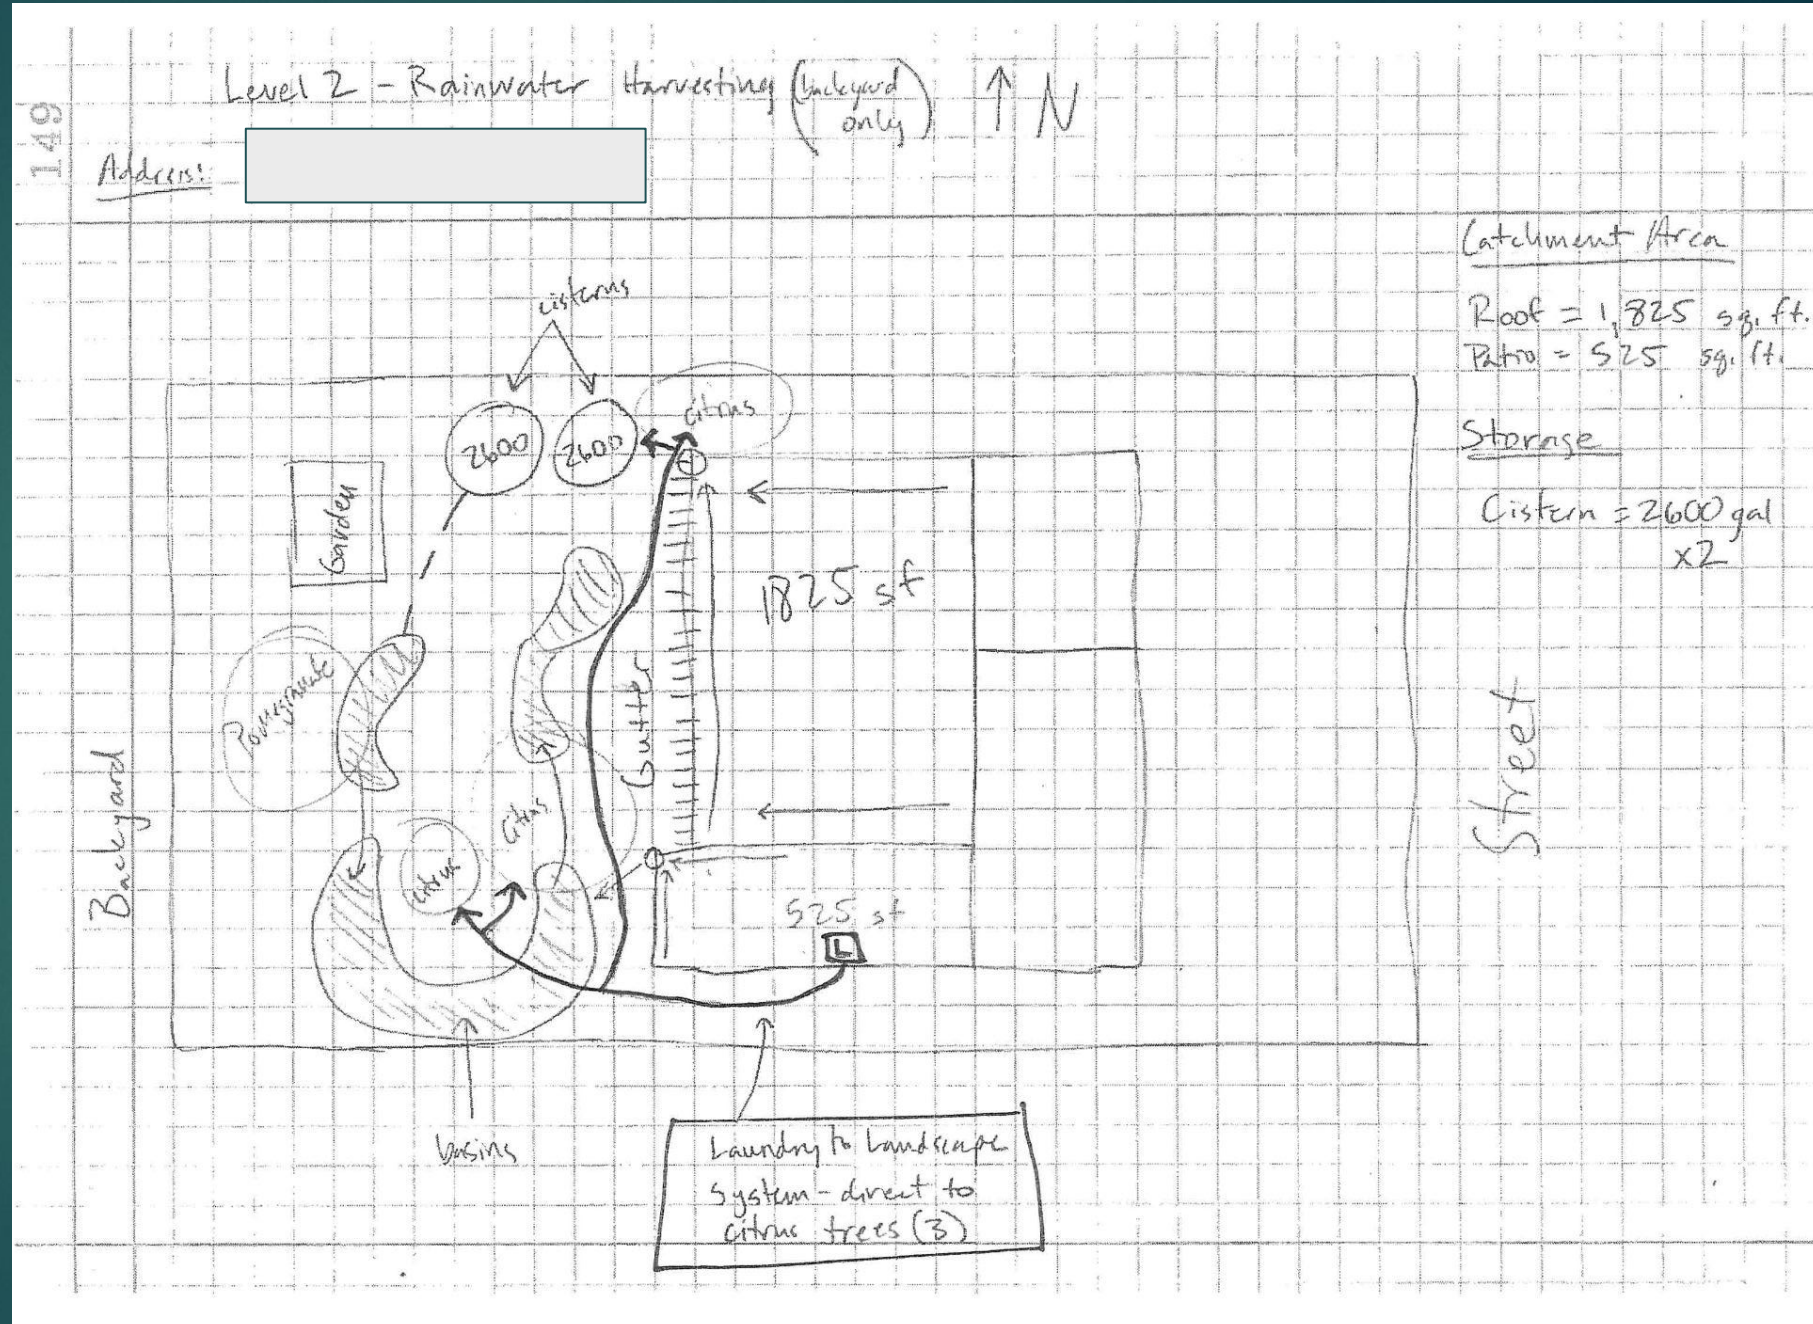 149
Level 2 - Rainwater Harvesting (backyard only)
↑ N
Address:
Catchment Area
Roof = 1,825 sq. ft.
Patio = 525 sq. ft.
Storage
Cistern = 2600 gal
x2
cisterns
2600
2600
citrus
Garden
1825 sf
Pomegranate
Gutter
Street
Backyard
Citrus
citrus
525 sf
L
basins
Laundry to Landscape
System - direct to
citrus trees (3)